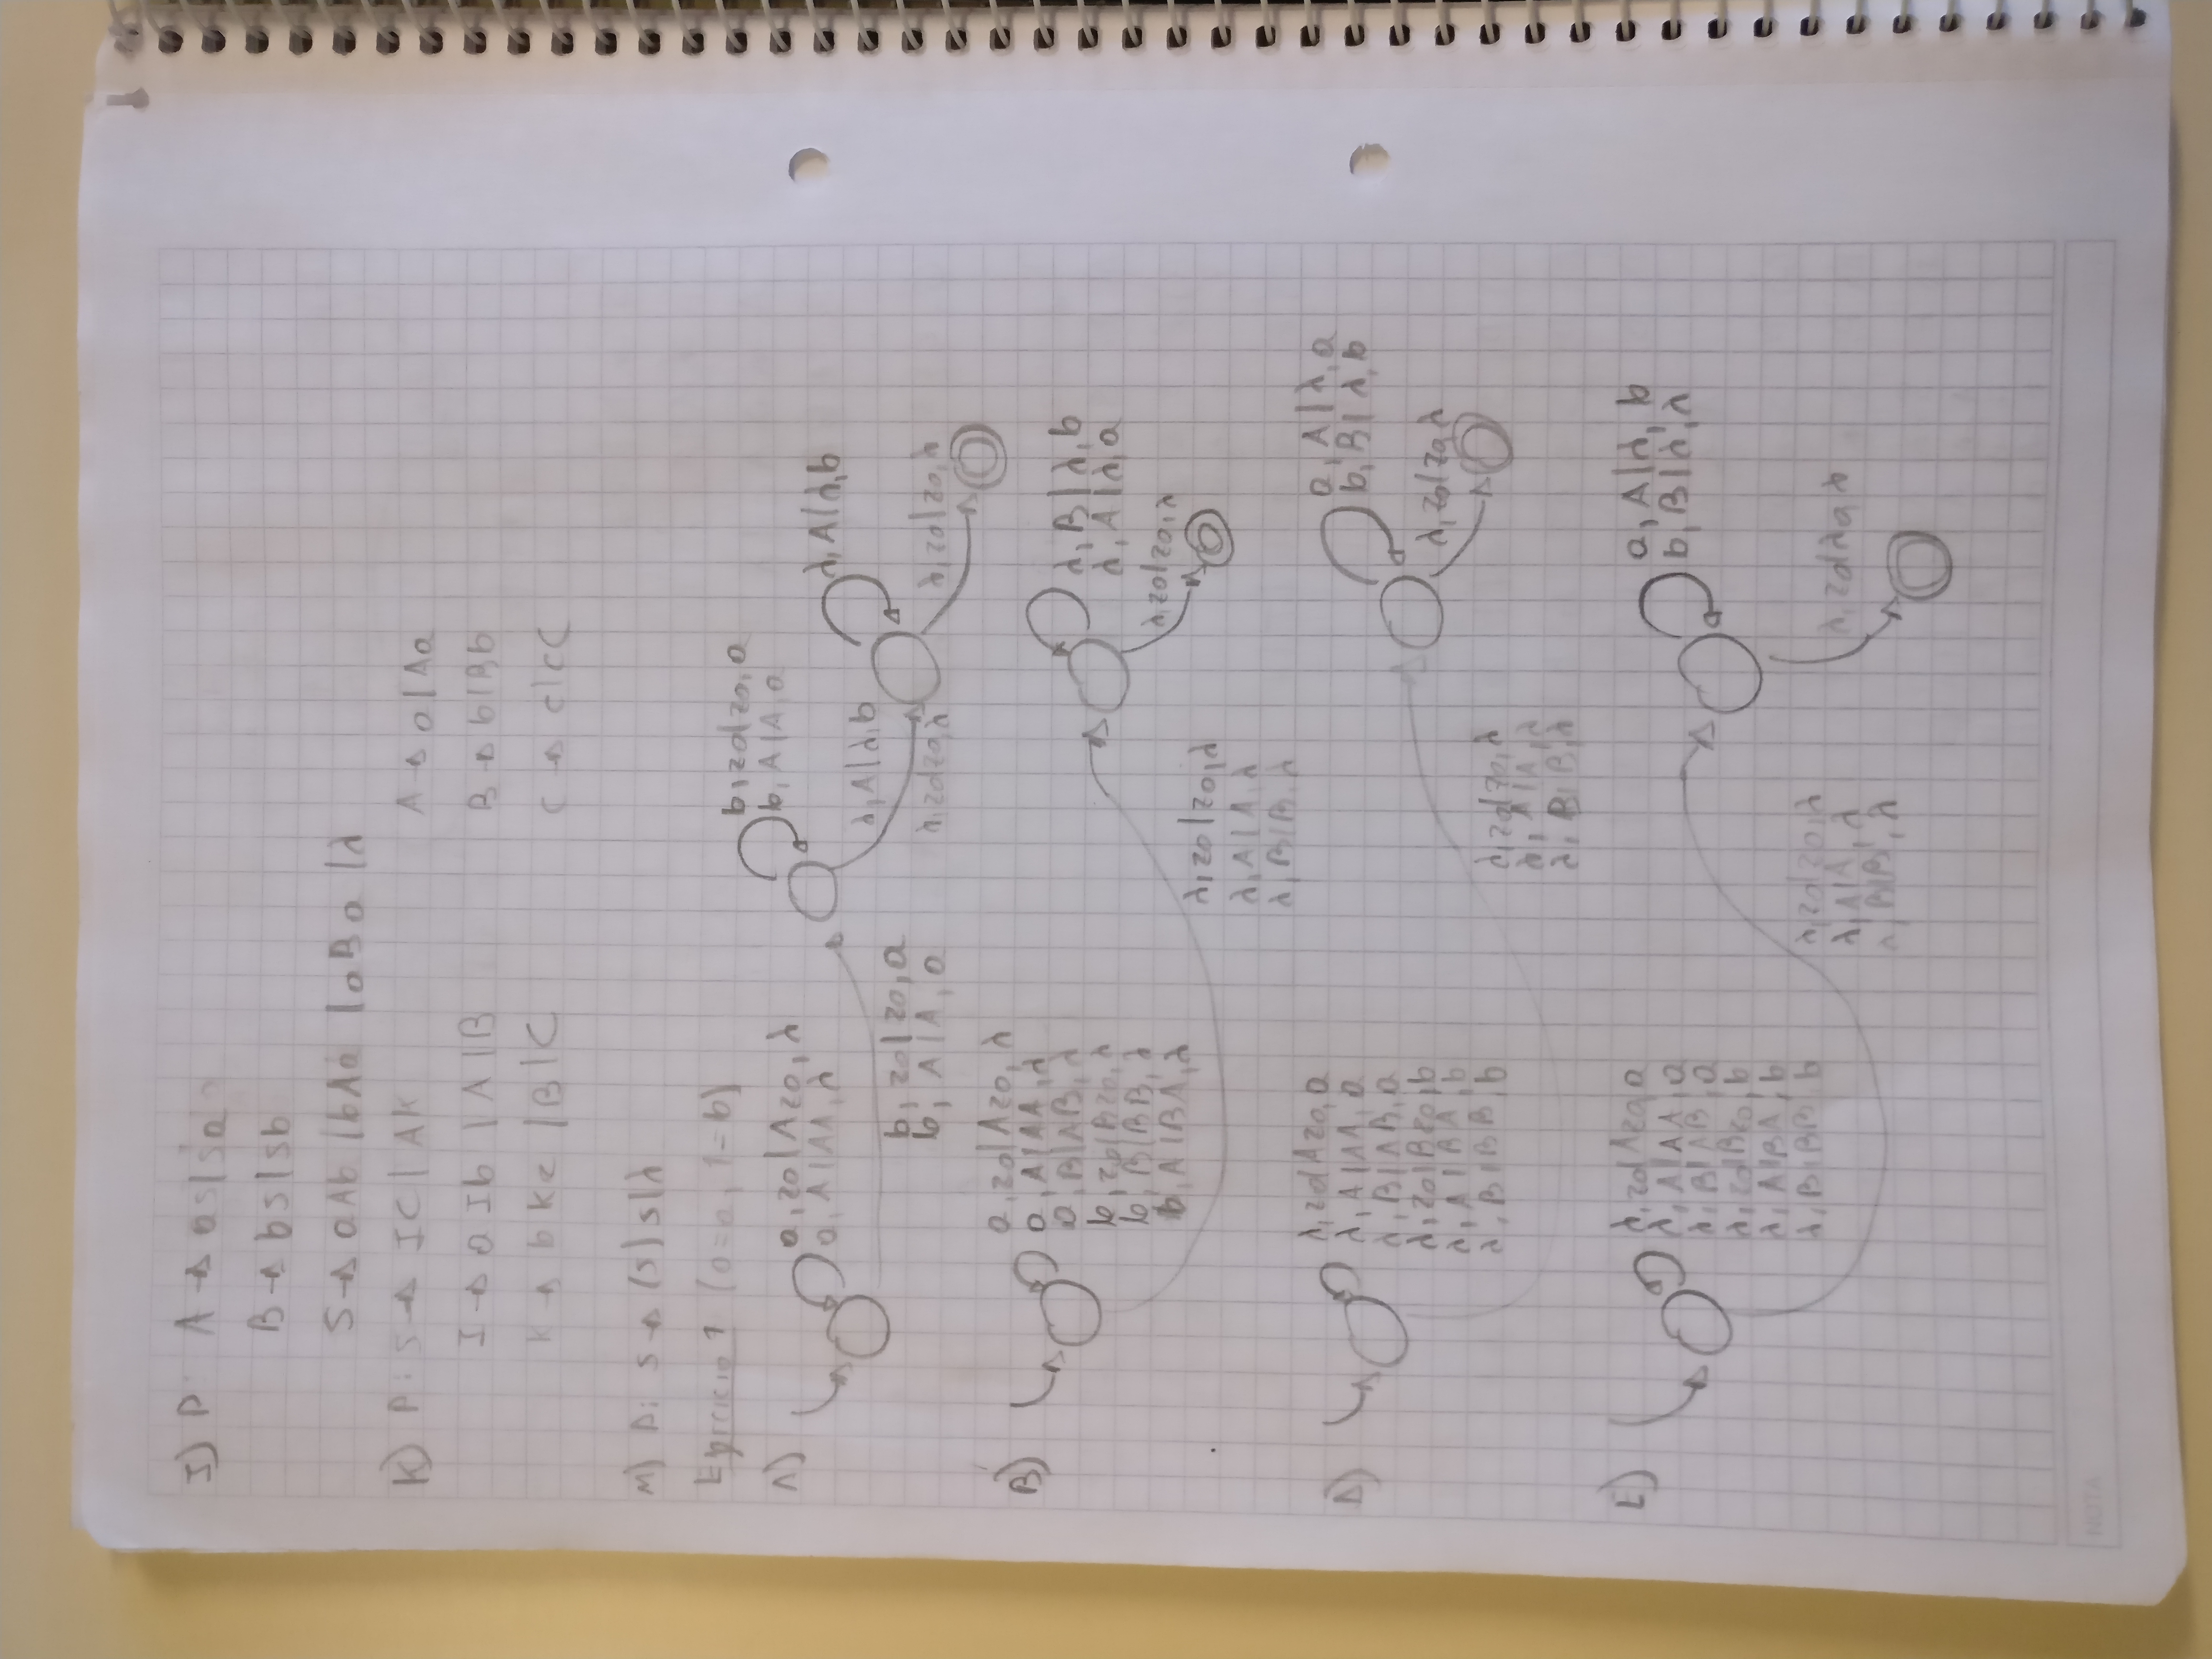 I) P: A → aS|Sa
B → bS|Sb
S → aAb |bAa |aBa |λ
K) P: S → IC|AK
A → a|Aa
I → aIb |A|B
B → b|Bb
K → bKc |B|C
C → c|cC
M) P: S → (S)S|λ
Ejercicio 1 (0=a, 1=b)
A)
a,z0|Az0,λ
a,A|AA,λ
b,z0|z0,a
b,A|A,a
b,z0|z0,a
b,A|A,a
λ,A|λ,b
λ,z0|z0,λ
λ,A|λ,b
λ,z0|z0,λ
B)
a,z0|Az0,λ
a,A|AA,λ
a,B|AB,λ
b,z0|Bz0,λ
b,B|BB,λ
b,A|BA,λ
λ,z0|z0,λ
λ,A|A,λ
λ,B|B,λ
λ,B|λ,b
λ,A|λ,a
λ,z0|z0,λ
D)
λ,z0|Az0,a
λ,A|AA,a
λ,B|AB,a
λ,z0|Bz0,b
λ,A|BA,b
λ,B|BB,b
λ,z0|z0,λ
λ,A|A,λ
λ,B|B,λ
a,A|λ,a
b,B|λ,b
λ,z0|z0,λ
E)
λ,z0|Az0,a
λ,A|AA,a
λ,B|AB,a
λ,z0|Bz0,b
λ,A|BA,b
λ,B|BB,b
λ,z0|z0,λ
λ,A|A,λ
λ,B|B,λ
a,A|λ,b
b,B|λ,λ
NOTA